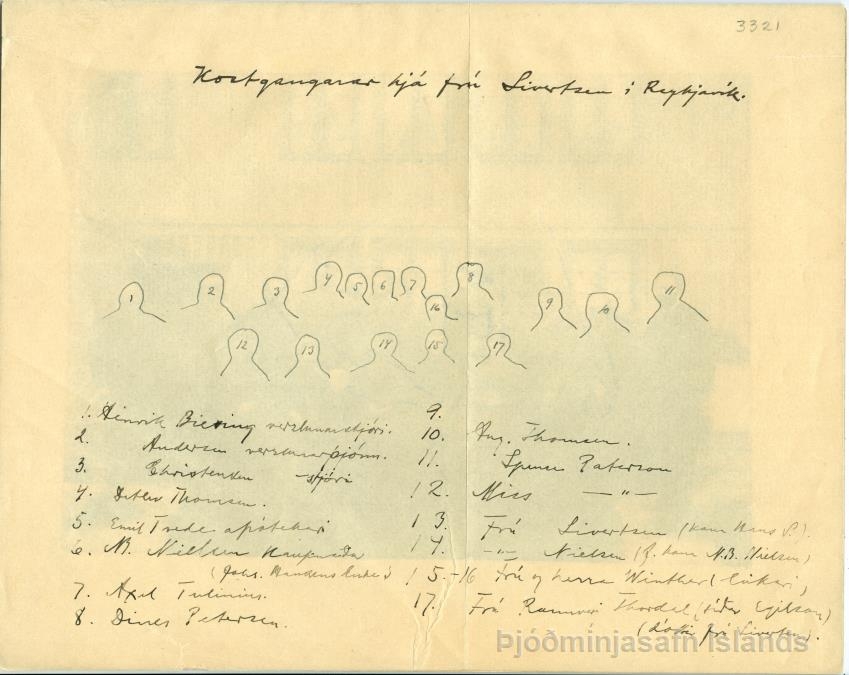 3321
Kostgangarar hjá frú Sivertsen í Reykjavík.
1 2 3 4 5 6 7 8 9 10 11
12 13 14 15 16 17
1. Hinrik Biering verzlunarstjóri.
2. Andersen verzlunarþjónn.
3. Christensen -stjóri
4. Ditlev Thomsen.
5. Emil Trede apótekari
6. N. B. Nielsen Kaupm.
(Johs.
7. Axel Tulinius.
8. Dines Petersen.
9.
10. Aug. Thomsen.
11. Spence Paterson
12. Miss —"—
13. Frú Sivertsen (kona Hans S.).
14. -"- Nielsen (f. kona N.B. Nielsen)
15.-16 Frú og herra Winther (
17. Frú Rannveig Thordal, (síðar Egilson)
(dóttir frú Sivertsen).
Þjóðminjasafn Íslands